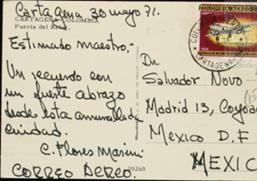 Cartagena 30 mayo 71.
CARTAGENA - COLOMBIA
Puerta del Reloj
Estimado maestro:
Un recuerdo con
un fuerte abrazo
desde esta amurallada
ciudad.
C. Flores Marini
CORREO AEREO.
COLOMBIA AEREO
Dr.
Salvador Novo
Madrid 13, Coyoac
Mexico D.F
MEXIC